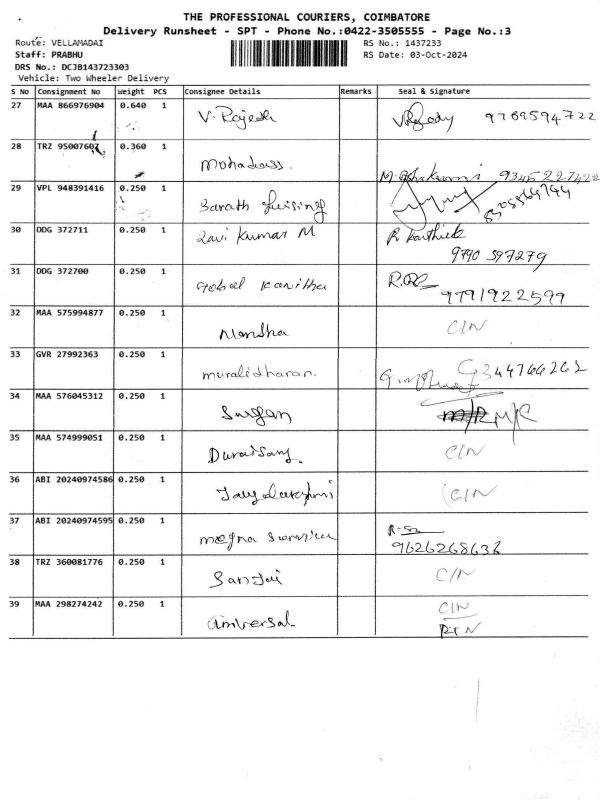 THE PROFESSIONAL COURIERS, COIMBATORE
Delivery Runsheet - SPT - Phone No.:0422-3505555 - Page No.:3
Route: VELLAMADAI RS No.: 1437233
Staff: PRABHU RS Date: 03-Oct-2024
DRS No.: DCJB143723303
Vehicle: Two Wheeler Delivery
S No Consignment No Weight PCS Consignee Details Remarks Seal & Signature
27 MAA 866976904 0.640 1 V. Rajesh 9769594722
28 TRZ 95007607 0.360 1 Mohadass. 9345227422
29 VPL 948391416 0.250 1 Barath
30 DDG 372711 0.250 1 Ravi Kumar M R Karthick
9790 397279
31 DDG 372700 0.250 1 Gobal Kavitha
9791922599
32 MAA 575994877 0.250 1 Nandha C/N
33 GVR 27992363 0.250 1 muralidharan. 9344766262
34 MAA 576045312 0.250 1
35 MAA 574999051 0.250 1 Duraisamy. C/N
36 ABI 20240974586 0.250 1 C/N
37 ABI 20240974595 0.250 1 megna
9626268638
38 TRZ 360081776 0.250 1 Sanjai C/N
39 MAA 298274242 0.250 1 universal C/N
RTN